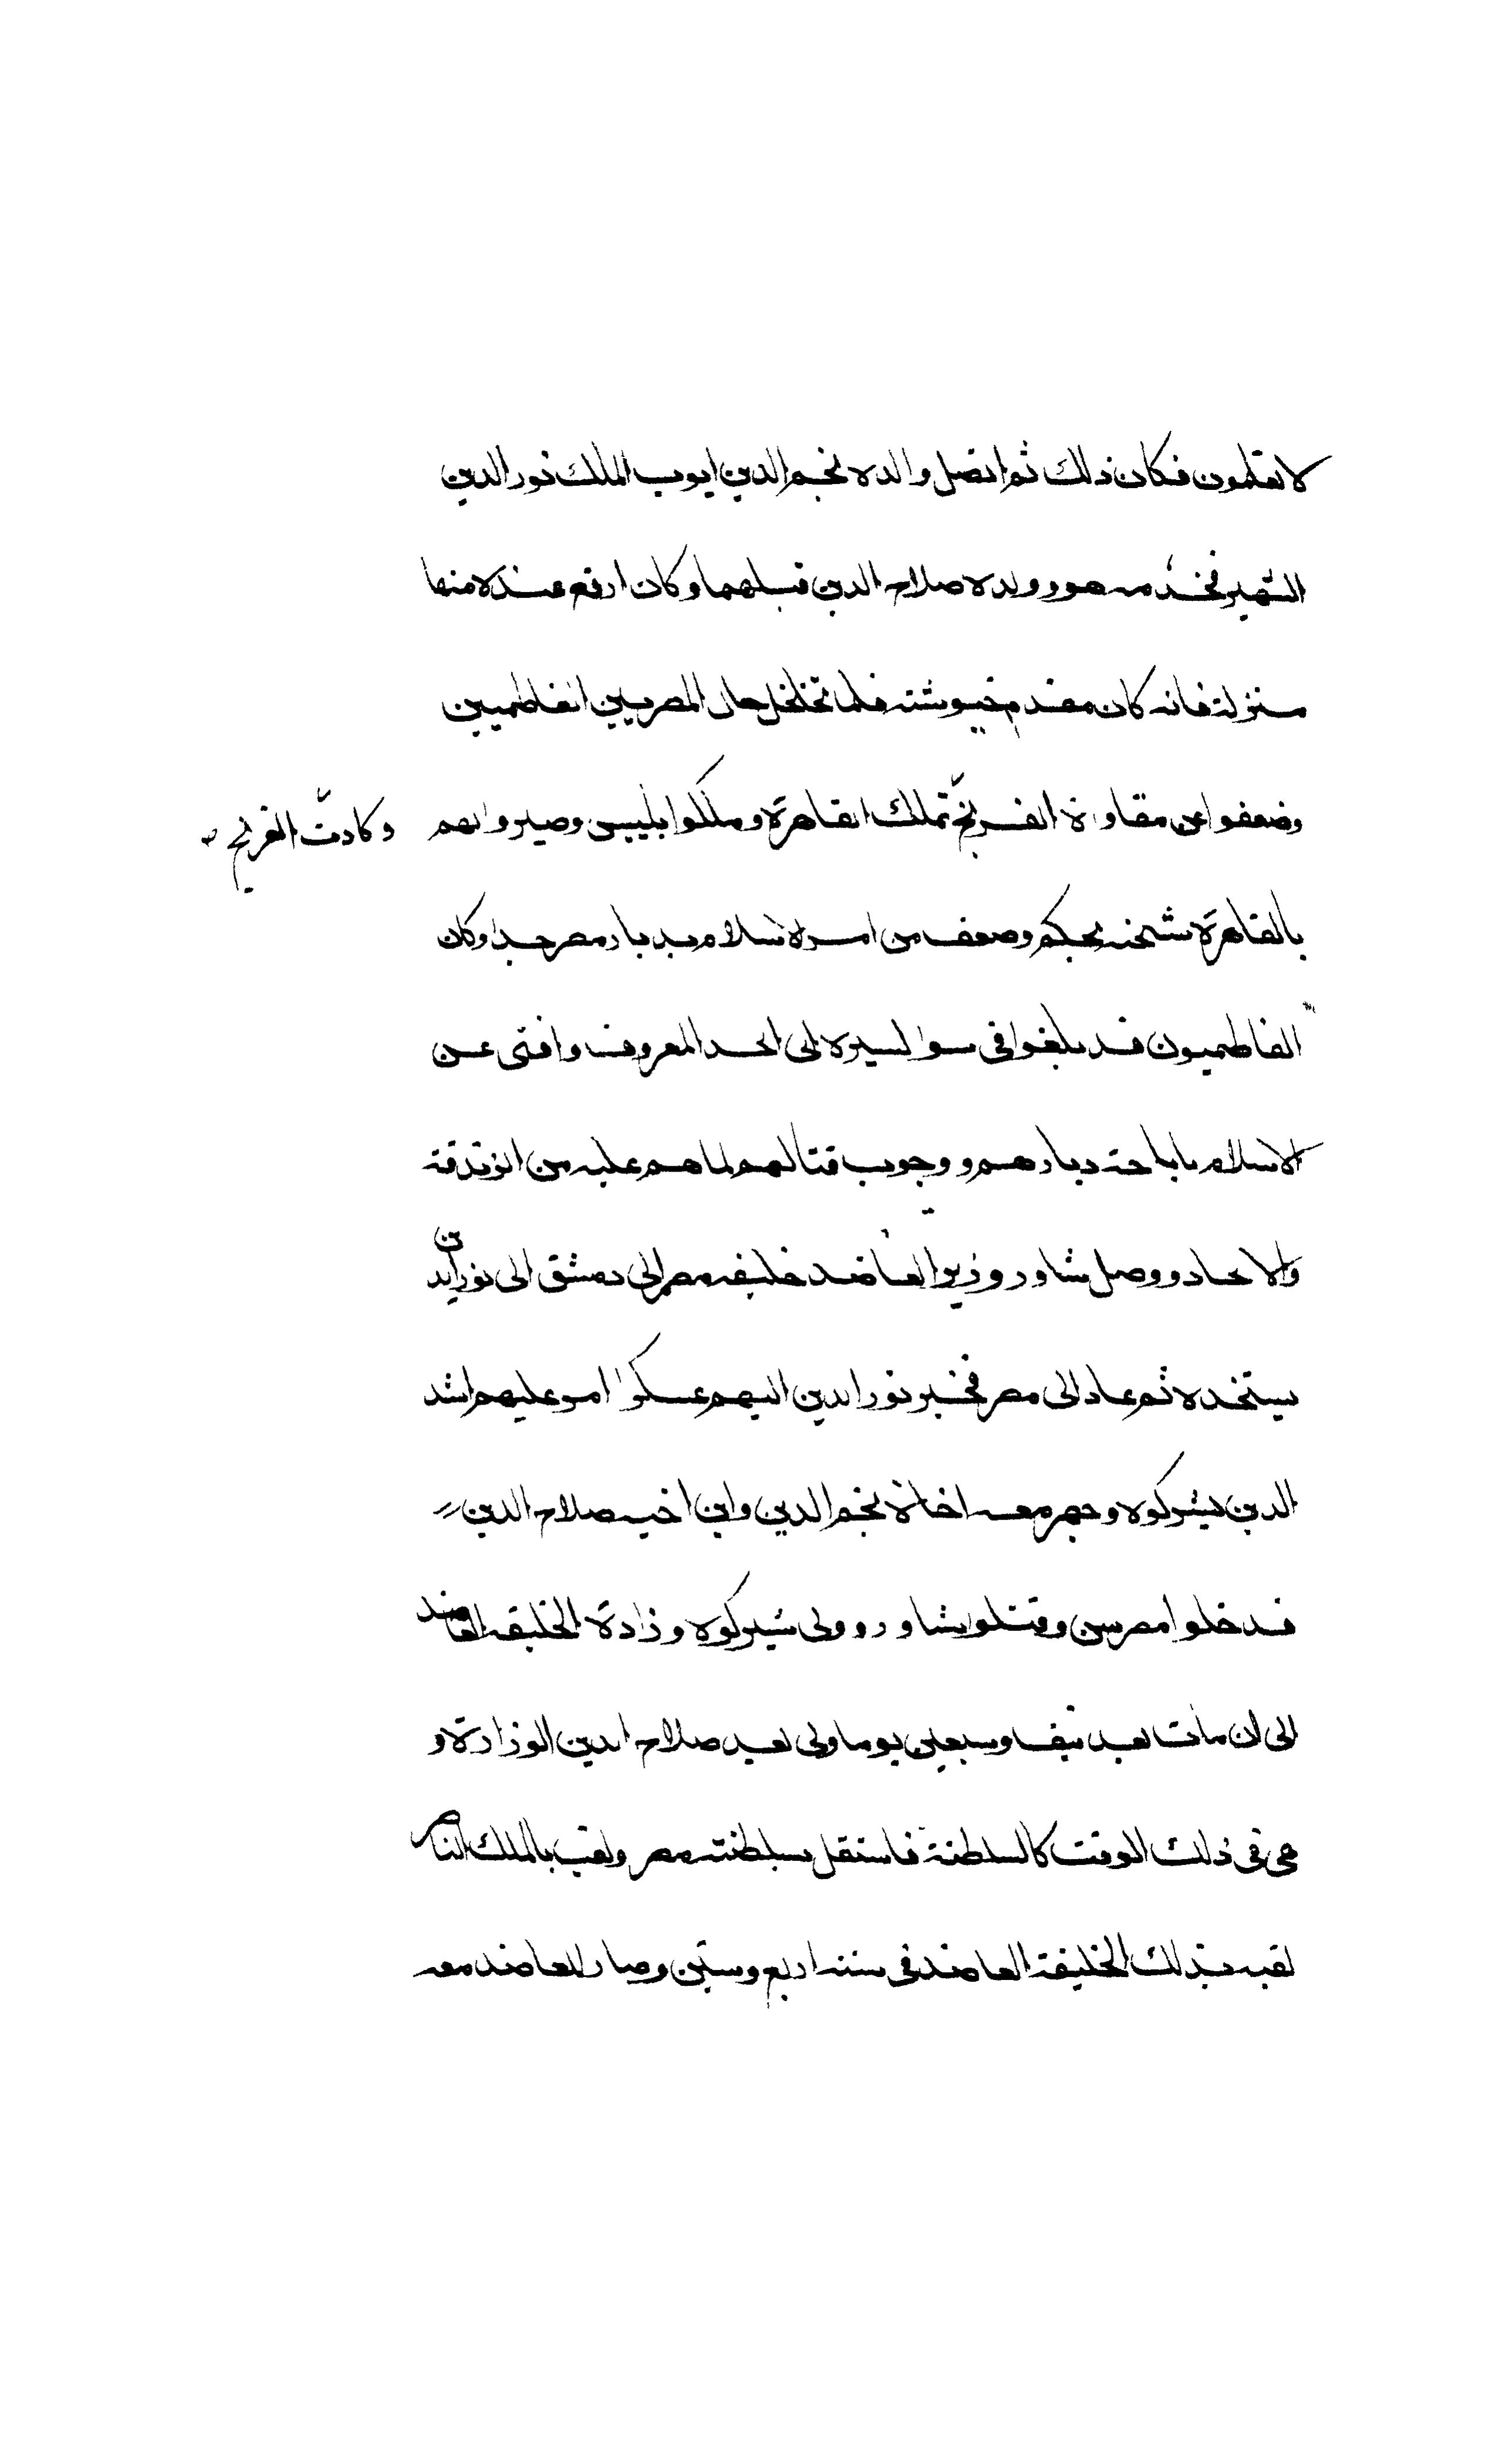 لا تعلمون فكان ذلك ثم اتصل والده نجم الدين ايوب الملك نور الدين
الشهير فخدمه هو وولده صلاح الدين قبلهما وكان ارفع عنده منها
منزلة فانه كان مقدم جيوشه فلما تخلخل حال المصريين الفاطميين
وضعفوا عن مقاومة الفرنج تملك القاهرة وملكوا بلبيس وصيروا لهم
وكادت الفرنج
بالقاهرة شحنه يحكم وضعف من امر الاسلام بديار مصر جدا وكان
الفاطميون قد بلغوا فى سوا لسيرة الى الحد المعروف وافتى عن
الاسلام باباحة ديارهم ووجوب قتالهم لما هم عليه من الزندقة
والالحاد ووصل شاور وزير العاضد خليفه مصر الى دمشق الى نور الدين
يستنجده ثم عاد الى مصر فجهز نور الدين اليهم عسكرا امر عليهم اسد
الدين شيركوه وجهز معه اخاه نجم الدين وابن اخيه صلاح الدين
فدخلوا مصر وقتلوا شاور وولى شيركوه وزارة الخليفه العاضد
الى ان مات بعد نيف وسبعين يوما وولى بعد صلاح الدين الوزارة و
هى فى ذلك الوقت كالسلطنة فاستقل بسلطنته مصر ولقب بالملك الناصر
لقبه بذلك الخليفة العاضد فى سنه اربع وستين وصار للعاضد معه